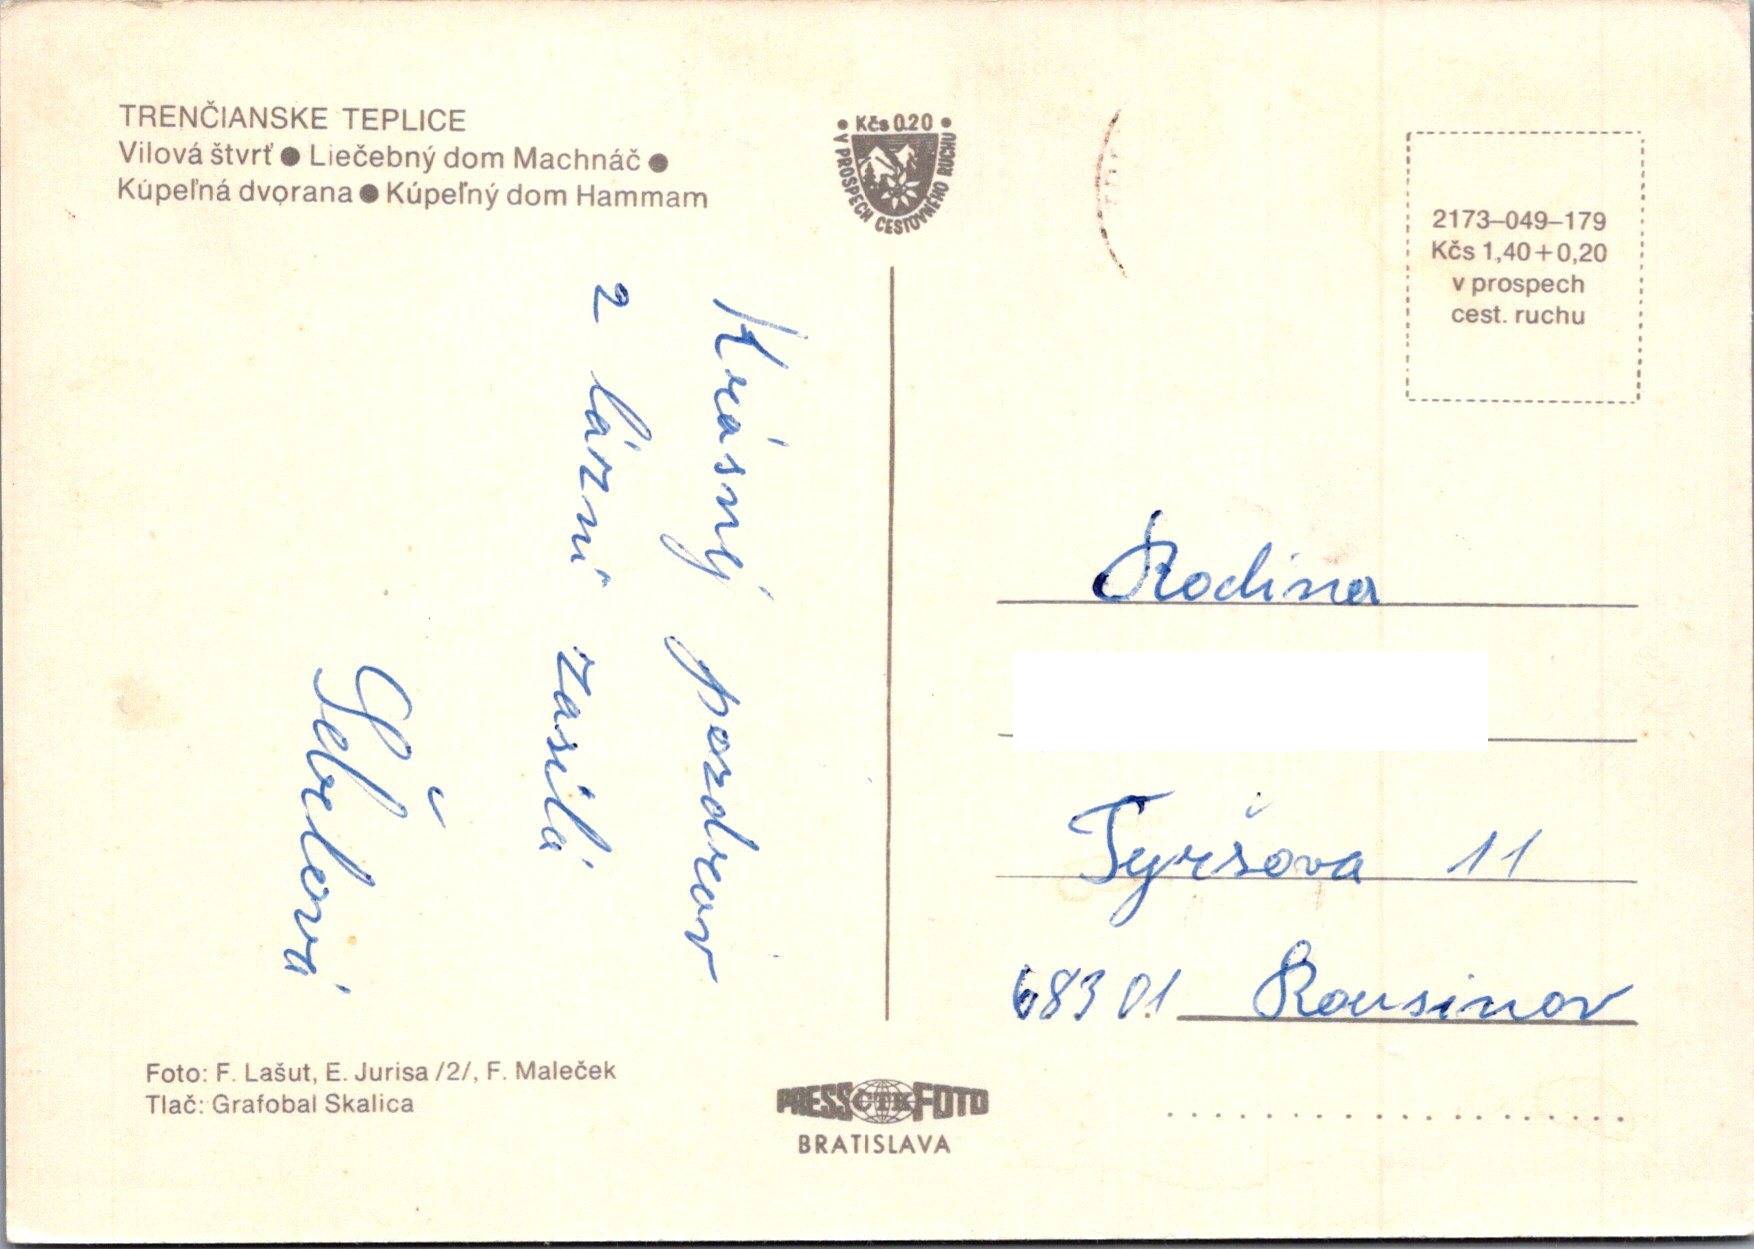 TRENČIANSKE TEPLICE
Vilová štvrť ● Liečebný dom Machnáč ●
Kúpeľná dvorana ● Kúpeľný dom Hammam
• Kčs 0.20 •
V PROSPECH CESTOVNÉHO RUCHU
2173–049–179
Kčs 1,40+0,20
v prospech
cest. ruchu
Krásný pozdrav
z lázní zasílá
Šebelová
Rodina
Tyršova 11
68301 Rousinov
Foto: F. Lašut, E. Jurisa /2/, F. Maleček
Tlač: Grafobal Skalica
PRESS ČTK FOTO
BRATISLAVA